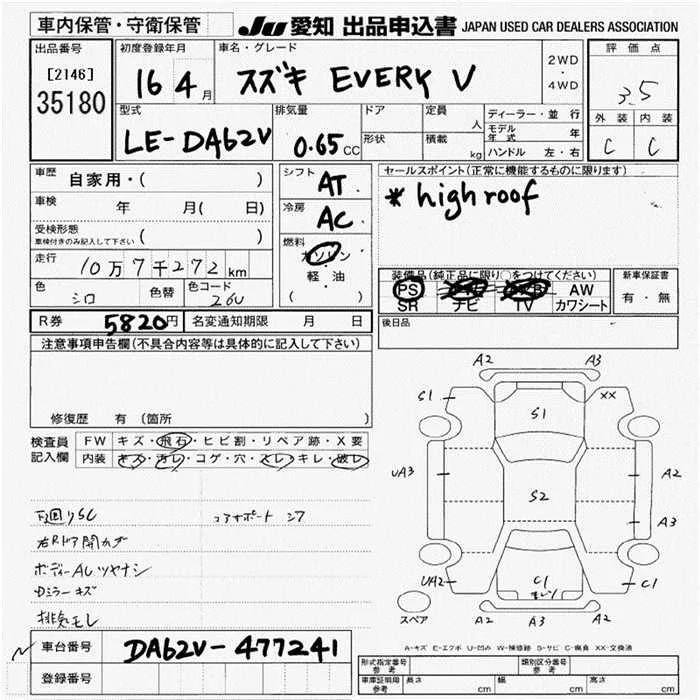 車内保管・守衛保管
JU 愛知 出品申込書 JAPAN USED CAR DEALERS ASSOCIATION
出品番号
[2146]
35180
初度登録年月
16 4 月
車名・グレード
スズキ EVERY V
2WD
・
4WD
評価点
3.5
外装 内装
C C
型式
LE-DA62V
排気量
0.65 CC
ドア
形状
定員
人
積載
kg
ディーラー・並行
モデル年式 年
ハンドル 左・右
車歴
自家用・( )
車検 年 月( 日)
受検形態
車検付きのみ記入して下さい ( )
走行
10万7千272 km
色
シロ
色替
色コード
26U
シフト
AT
冷房
AC
燃料
ガソリン
・
軽・油
( )
セールスポイント(正常に機能するものに限ります)
* high roof
装備品(純正品に限り○をつけてください)
PS AW
SR ナビ TV カワシート
新車保証書
有・無
R券 5820円 名変通知期限 月 日
後日品
注意事項申告欄(不具合内容等は具体的に記入して下さい)
修復歴 有 (箇所 )
検査員
記入欄
FW キズ・飛石・ヒビ割・リペア跡・X要
内装 キズ・汚レ・コゲ・穴・スレ・キレ・破レ
下回りSC コアサポート シワ
右Rドア開カズ
ボディーAUツヤナシ
ミラーキズ
排気モレ
A2 A3
S1 XX
S1
UA3 S2 A2
A3
UA2 C1 C1
A2 A3 A2
スペア
A-キズ E-エクボ U-凹み W-補修跡 S-サビ C-腐食 XX-交換済
車台番号 DA62V-477241
登録番号
形式指定番号
参考
類別区分番号
参考
車庫証明用
参考
長さ cm 幅 cm 高さ cm